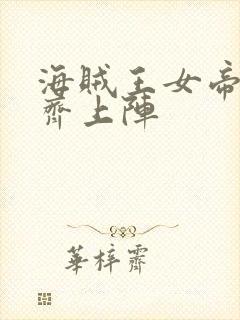 海賊王女帝
齊上陣
華梓霽